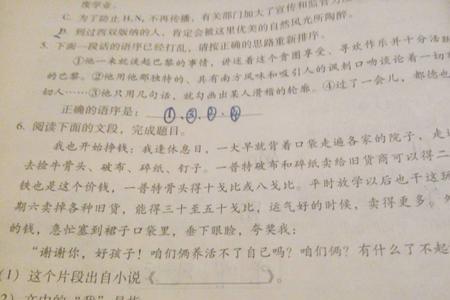 度学业。
C. 为了防止H₁N₁不再传播，有关部门加大了宣传和监管力
D. 到过西双版纳的人，肯定会被这里优美的自然风光所陶醉。
5. 下面一段话的语序已经打乱，请按正确的思路重新排序。
①他一来就谈起巴黎的事情，讲述着这个贪图享受、寻欢作乐并十分活
的巴黎。②他用他那独特的、具有南方风味和吸引人的讽刺口吻谈论着一切
幻人……③他只用几句话，就勾画出某人滑稽的轮廓。④过了一会儿，都德也
正确的语序是：①.③.②.④
6. 阅读下面的文段，完成题目。
我也开始挣钱：我逢休息日，一大早就背着口袋走遍各家的院子，走
去捡牛骨头、破布、碎纸、钉子。一普特破布和碎纸卖给旧货商可以得二
铁也是这个价钱，一普特骨头得十戈比或八戈比。平时放学以后也干这
期六卖掉各种旧货，能得三十至五十戈比，运气好的时候，卖得更多。
的钱，急忙塞到裙子口袋里，垂下眼睑，夸奖我：
“谢谢你，好孩子！咱们俩养活不了自己吗？咱们俩？有什么了不起
(1) 这个片段出自小说《 》。